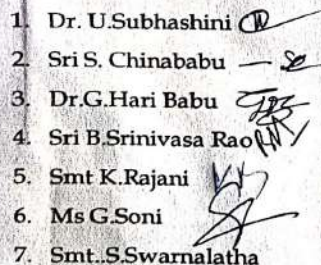 1. Dr. U.Subhashini
2. Sri S. Chinababu
3. Dr.G.Hari Babu
4. Sri B.Srinivasa Rao
5. Smt K.Rajani
6. Ms G.Soni
7. Smt..S.Swarnalatha